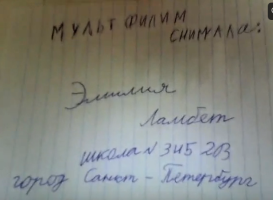 МУЛЬТФИЛИМ
СНИМАЛА:
Эмилия
Ламбет
школа № 345 2В
город Санкт-Петербург